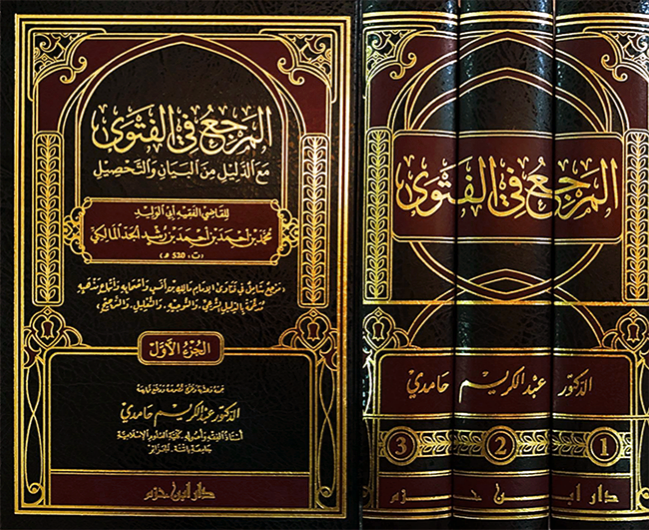 المرجع في الفتوى
مع الدليل من البيان والتحصيل
للقاضي الفقيه أبي الوليد
محمد بن أحمد بن أحمد بن رشد الجد المالكي
(ت: 520 هـ)
مرجع شامل في فتاوى الإمام مالك بن أنس وأصحابه وأتباع مذهبه
مدعمة بالدليل الشرعي، والتوجيه، والتعليل، والترجيح
الجزء الأول
الدكتور عبد الكريم حامدي
أستاذ الفقه وأصوله كلية العلوم الإسلامية
جامعة باتنة. الجزائر
دار ابن حزم
المرجع في الفتوى
الدكتور عبد الكريم حامدي
1
2
3
دار ابن حزم